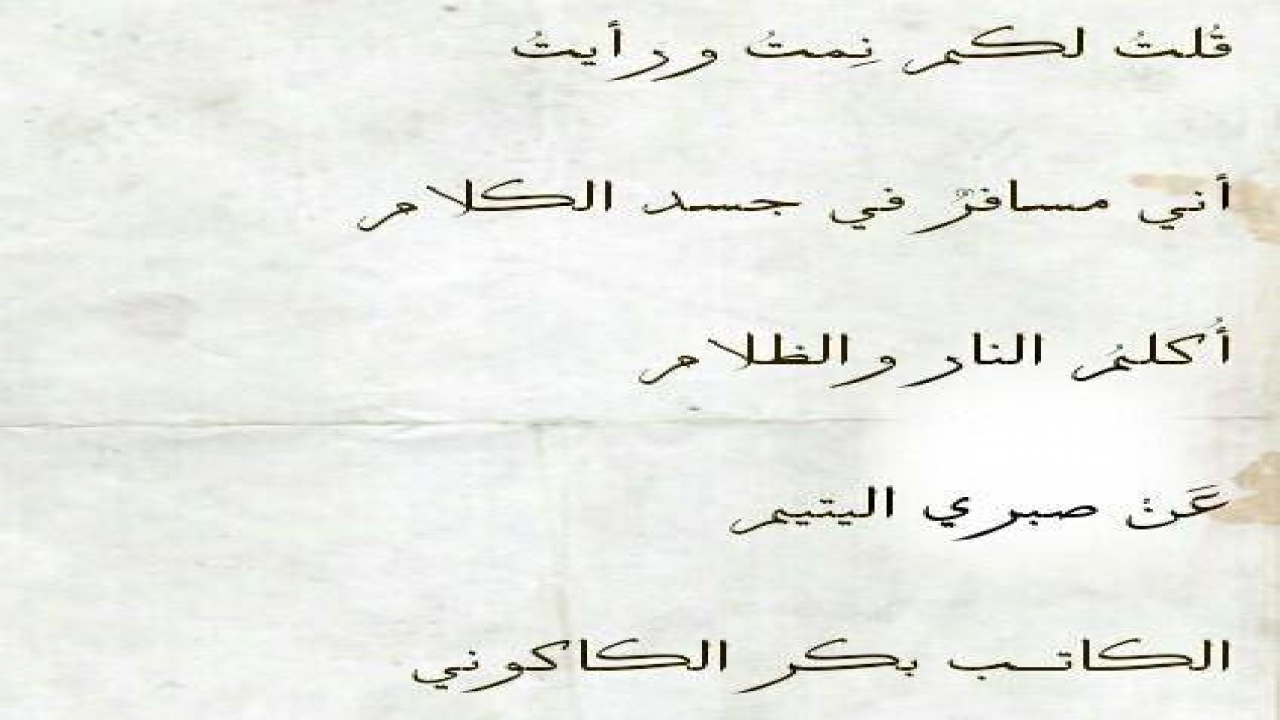 قُلتُ لكم نِمتُ ورأيتُ
أني مسافرٌ في جسد الكلام
أُكلمُ النار والظلام
عَنْ صبري اليتيم
الكاتب بكر الكاكوني